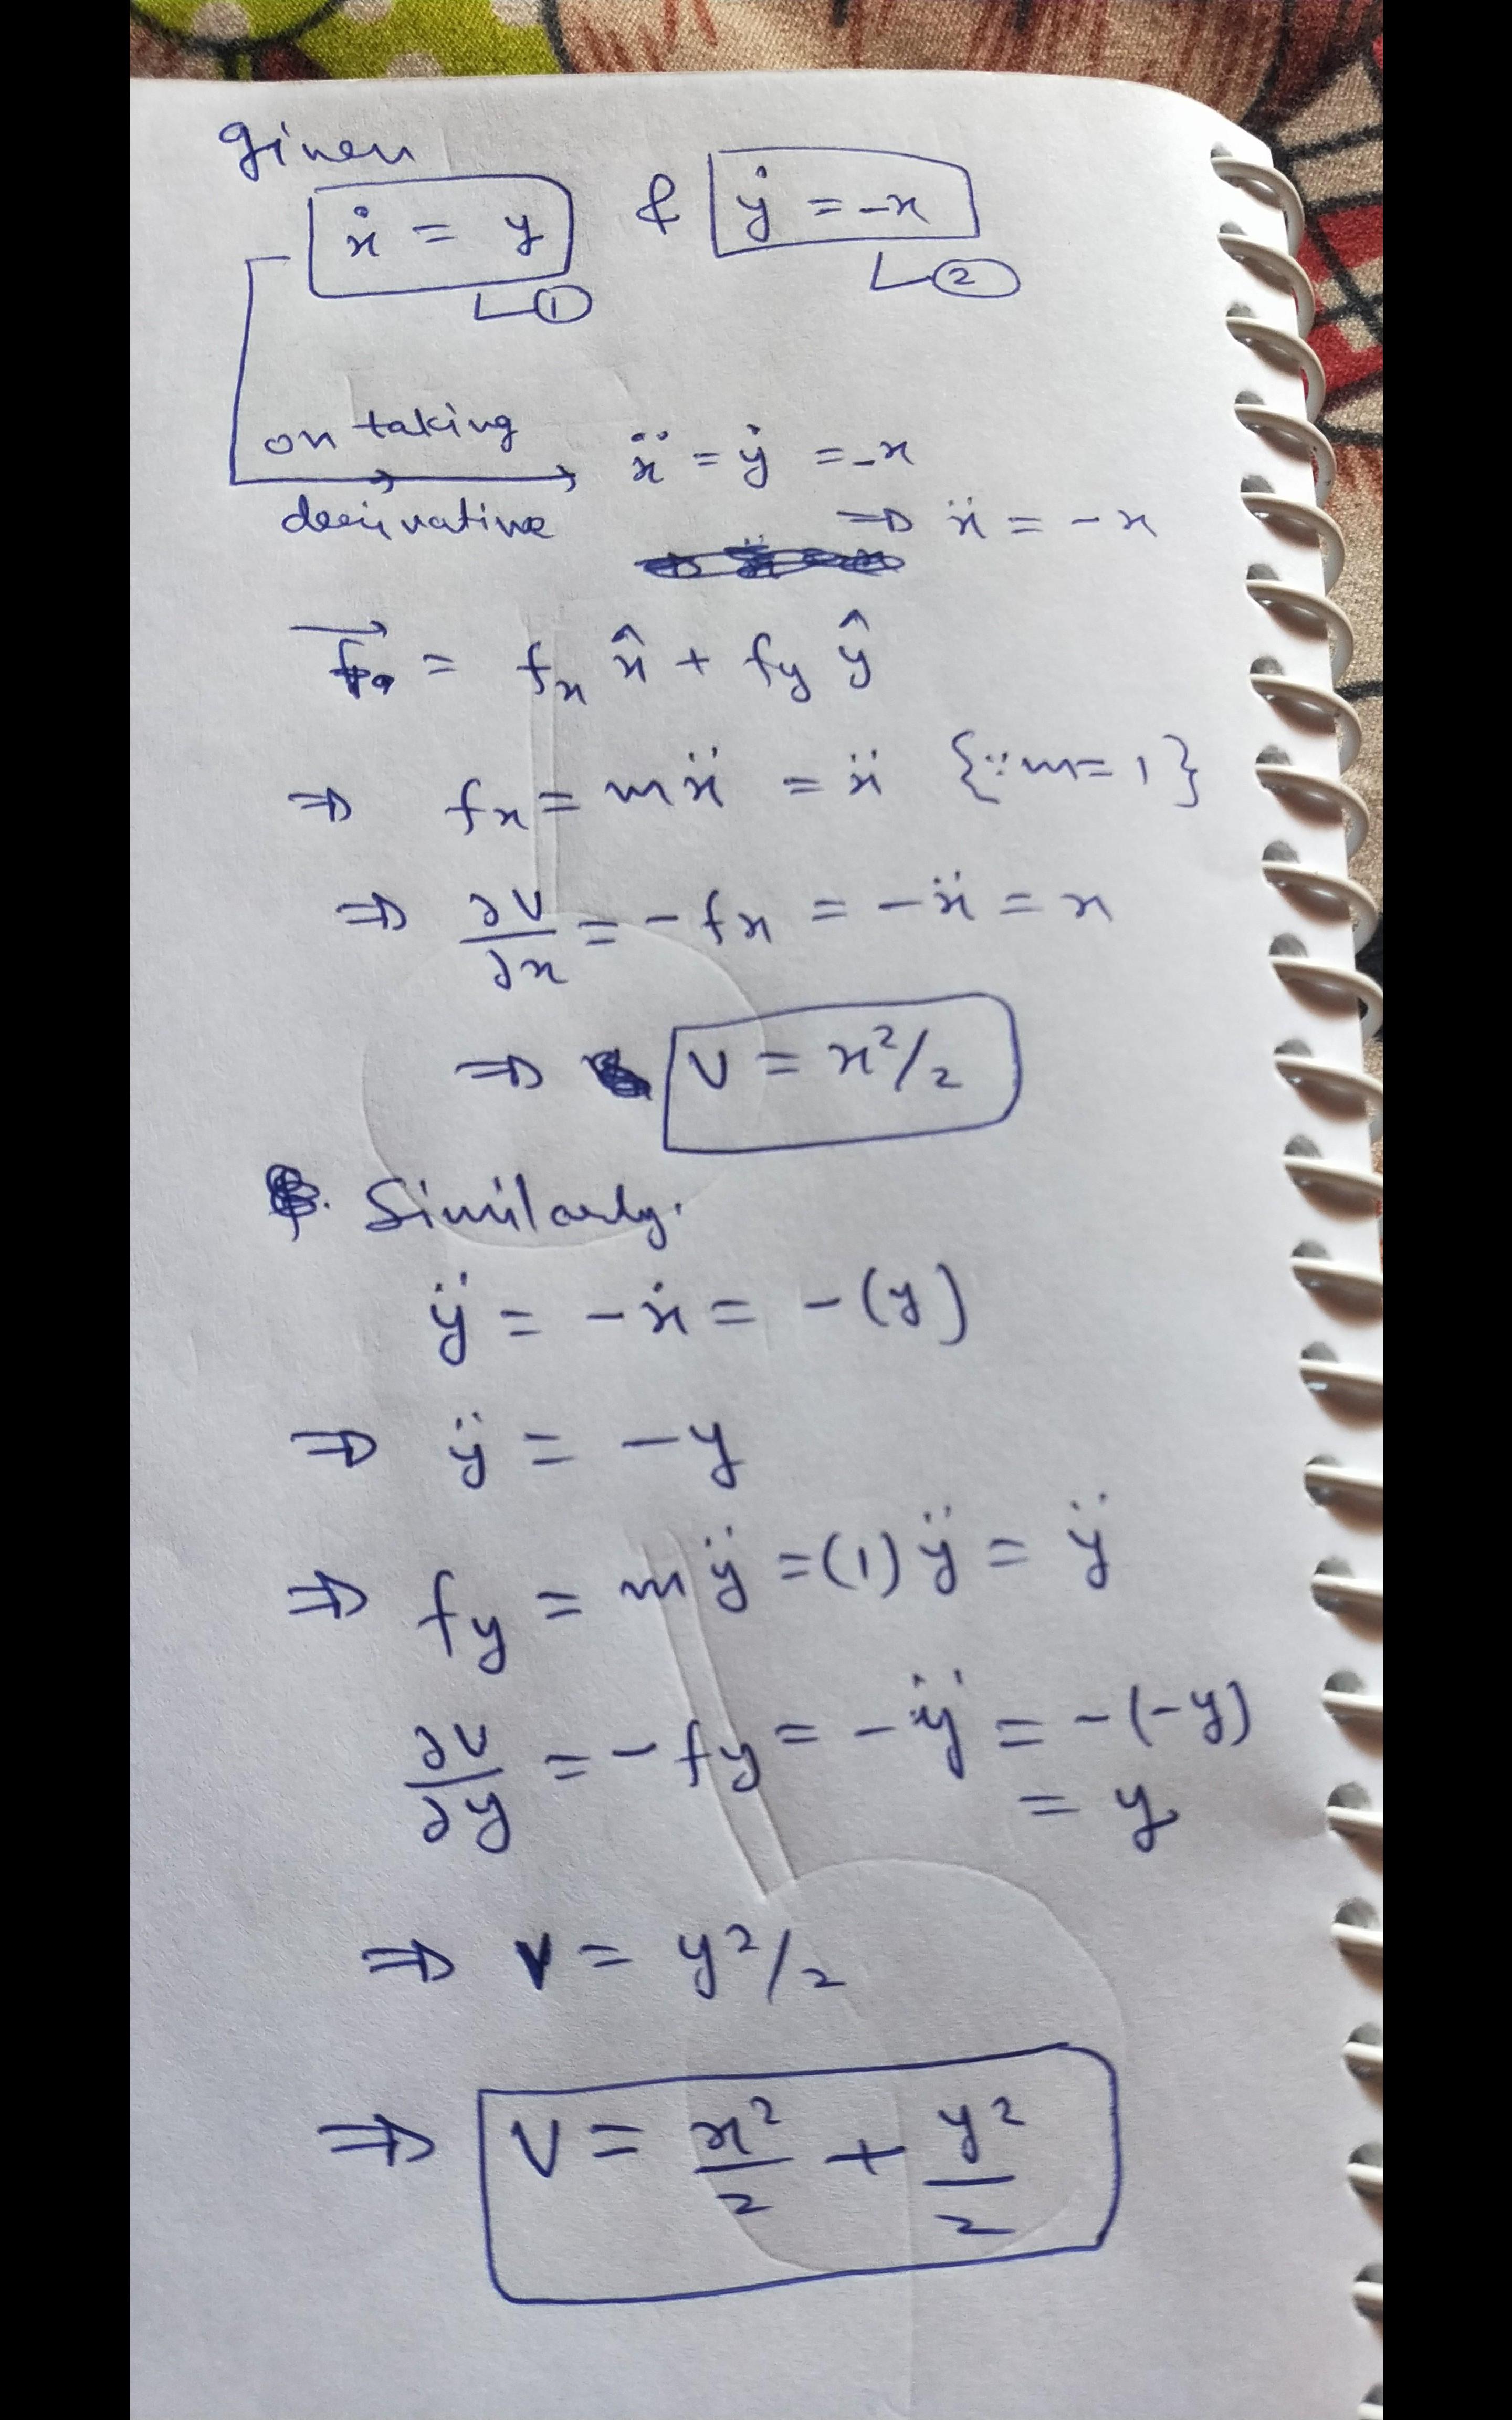 Given
ẋ = y & ẏ = -x
① ②
on taking
derivative
ẍ = ẏ = -x
⇒ ẍ = -x
= fx x̂ + fy ŷ
⇒ fx = mẍ = ẍ {∵ m = 1}
⇒ ∂V/∂x = -fx = -ẍ = x
⇒ V = x²/2
Similarly.
ÿ = -ẋ = -(y)
⇒ ÿ = -y
⇒ fy = mÿ = (1)ÿ = ÿ
∂V/∂y = -fy = -ÿ = -(-y)
= y
⇒ V = y²/2
⇒ V = x²/2 + y²/2